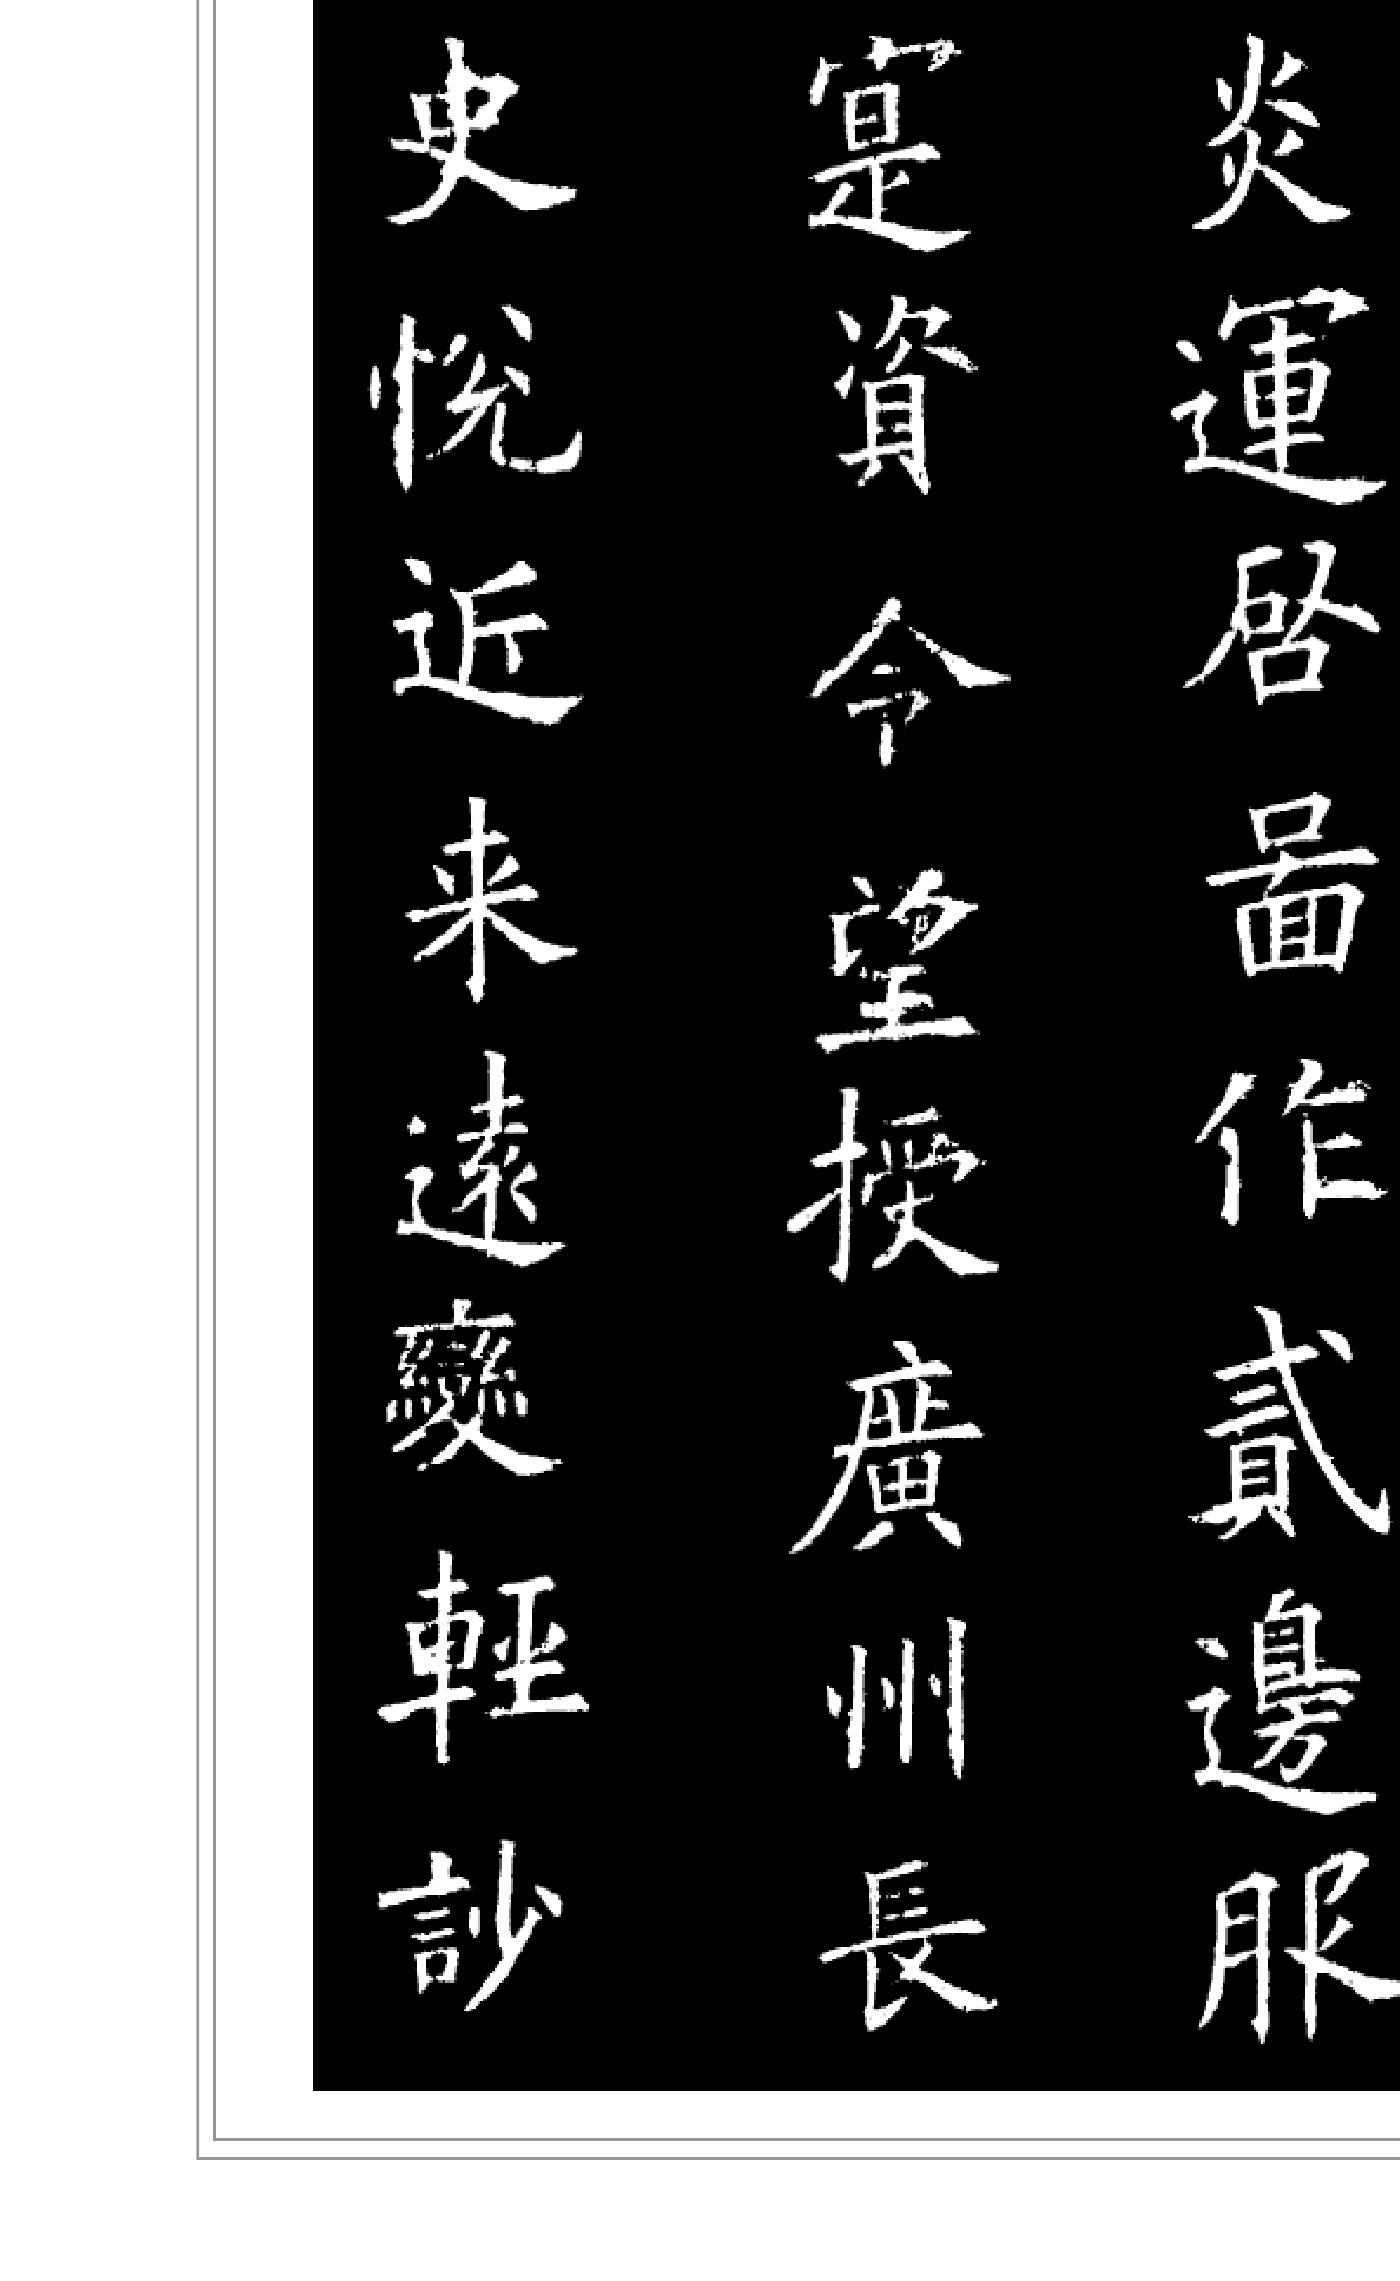 炎運啓啚作貳邊服
寔資令望授廣州長
史悅近来遠變輕訬